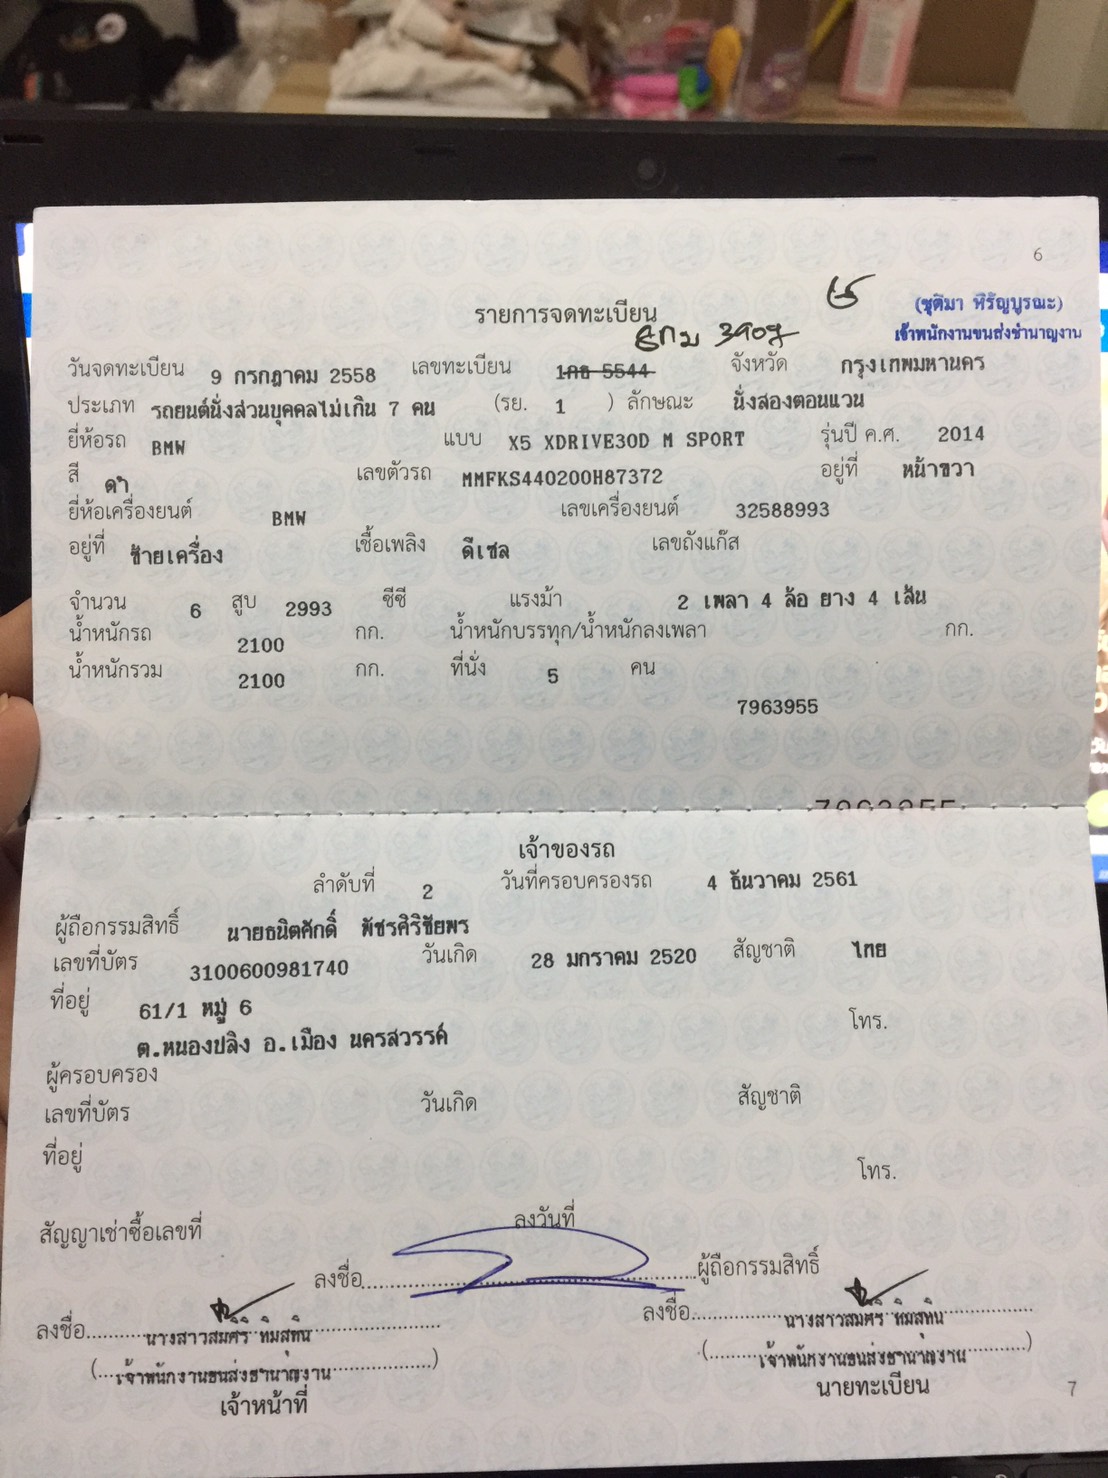 6
(ชุติมา หิรัญบูรณะ)
เจ้าพนักงานขนส่งชำนาญงาน
รายการจดทะเบียน
วันจดทะเบียน 9 กรกฎาคม 2558 เลขทะเบียน 1กธ 5544 จังหวัด กรุงเทพมหานคร
ประเภท รถยนต์นั่งส่วนบุคคลไม่เกิน 7 คน (รย. 1 ) ลักษณะ นั่งสองตอนแวน
ยี่ห้อรถ BMW แบบ X5 XDRIVE30D M SPORT รุ่นปี ค.ศ. 2014
สี ดำ เลขตัวรถ MMFKS440200H87372 อยู่ที่ หน้าขวา
ยี่ห้อเครื่องยนต์ BMW เลขเครื่องยนต์ 32588993
อยู่ที่ ซ้ายเครื่อง เชื้อเพลิง ดีเซล เลขถังแก๊ส
จำนวน 6 สูบ 2993 ซีซี แรงม้า 2 เพลา 4 ล้อ ยาง 4 เส้น
น้ำหนักรถ 2100 กก. น้ำหนักบรรทุก/น้ำหนักลงเพลา กก.
น้ำหนักรวม 2100 กก. ที่นั่ง 5 คน
7963955
เจ้าของรถ
ลำดับที่ 2 วันที่ครอบครองรถ 4 ธันวาคม 2561
ผู้ถือกรรมสิทธิ์ นายธนิตศักดิ์ พัชรศิริชัยพร
เลขที่บัตร 3100600981740 วันเกิด 28 มกราคม 2520 สัญชาติ ไทย
ที่อยู่ 61/1 หมู่ 6 โทร.
ต.หนองปลิง อ.เมือง นครสวรรค์
ผู้ครอบครอง
เลขที่บัตร วันเกิด สัญชาติ
ที่อยู่ โทร.
สัญญาเช่าซื้อเลขที่ ลงวันที่
ลงชื่อ ผู้ถือกรรมสิทธิ์
ลงชื่อ นางสาวสมศิริ ทิมสุทิน ลงชื่อ นางสาวสมศิริ ทิมสุทิน
(เจ้าพนักงานขนส่งชำนาญงาน) (เจ้าพนักงานขนส่งชำนาญงาน)
เจ้าหน้าที่ นายทะเบียน
7